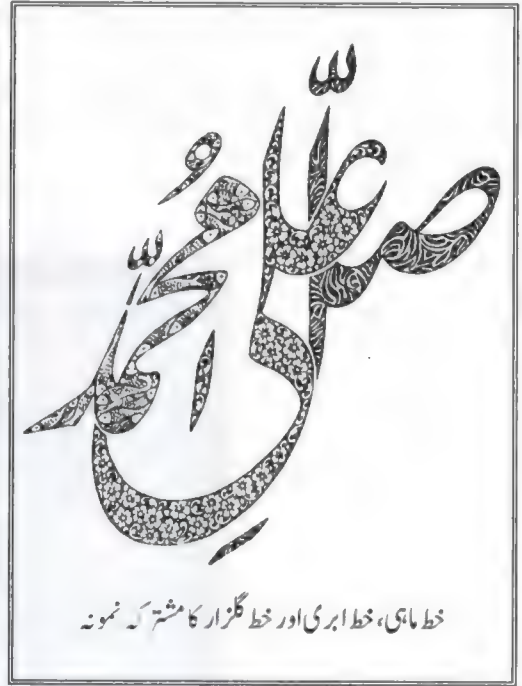 صَلِّ عَلىٰ مُحَمَّد
خط ماہی، خط ابری اور خط گلزار کا مشترکہ نمونہ